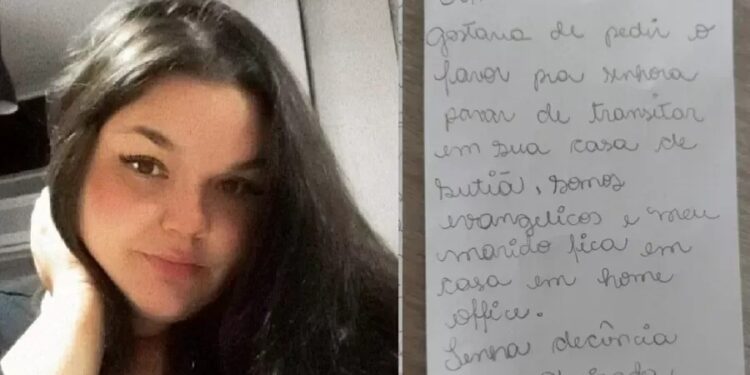 gostaria de pedir o
favor pra senhora
parar de transitar
em sua casa de
sutiã, somos
evangelicos e meu
marido fica em
casa em home
office.
Tenha decência